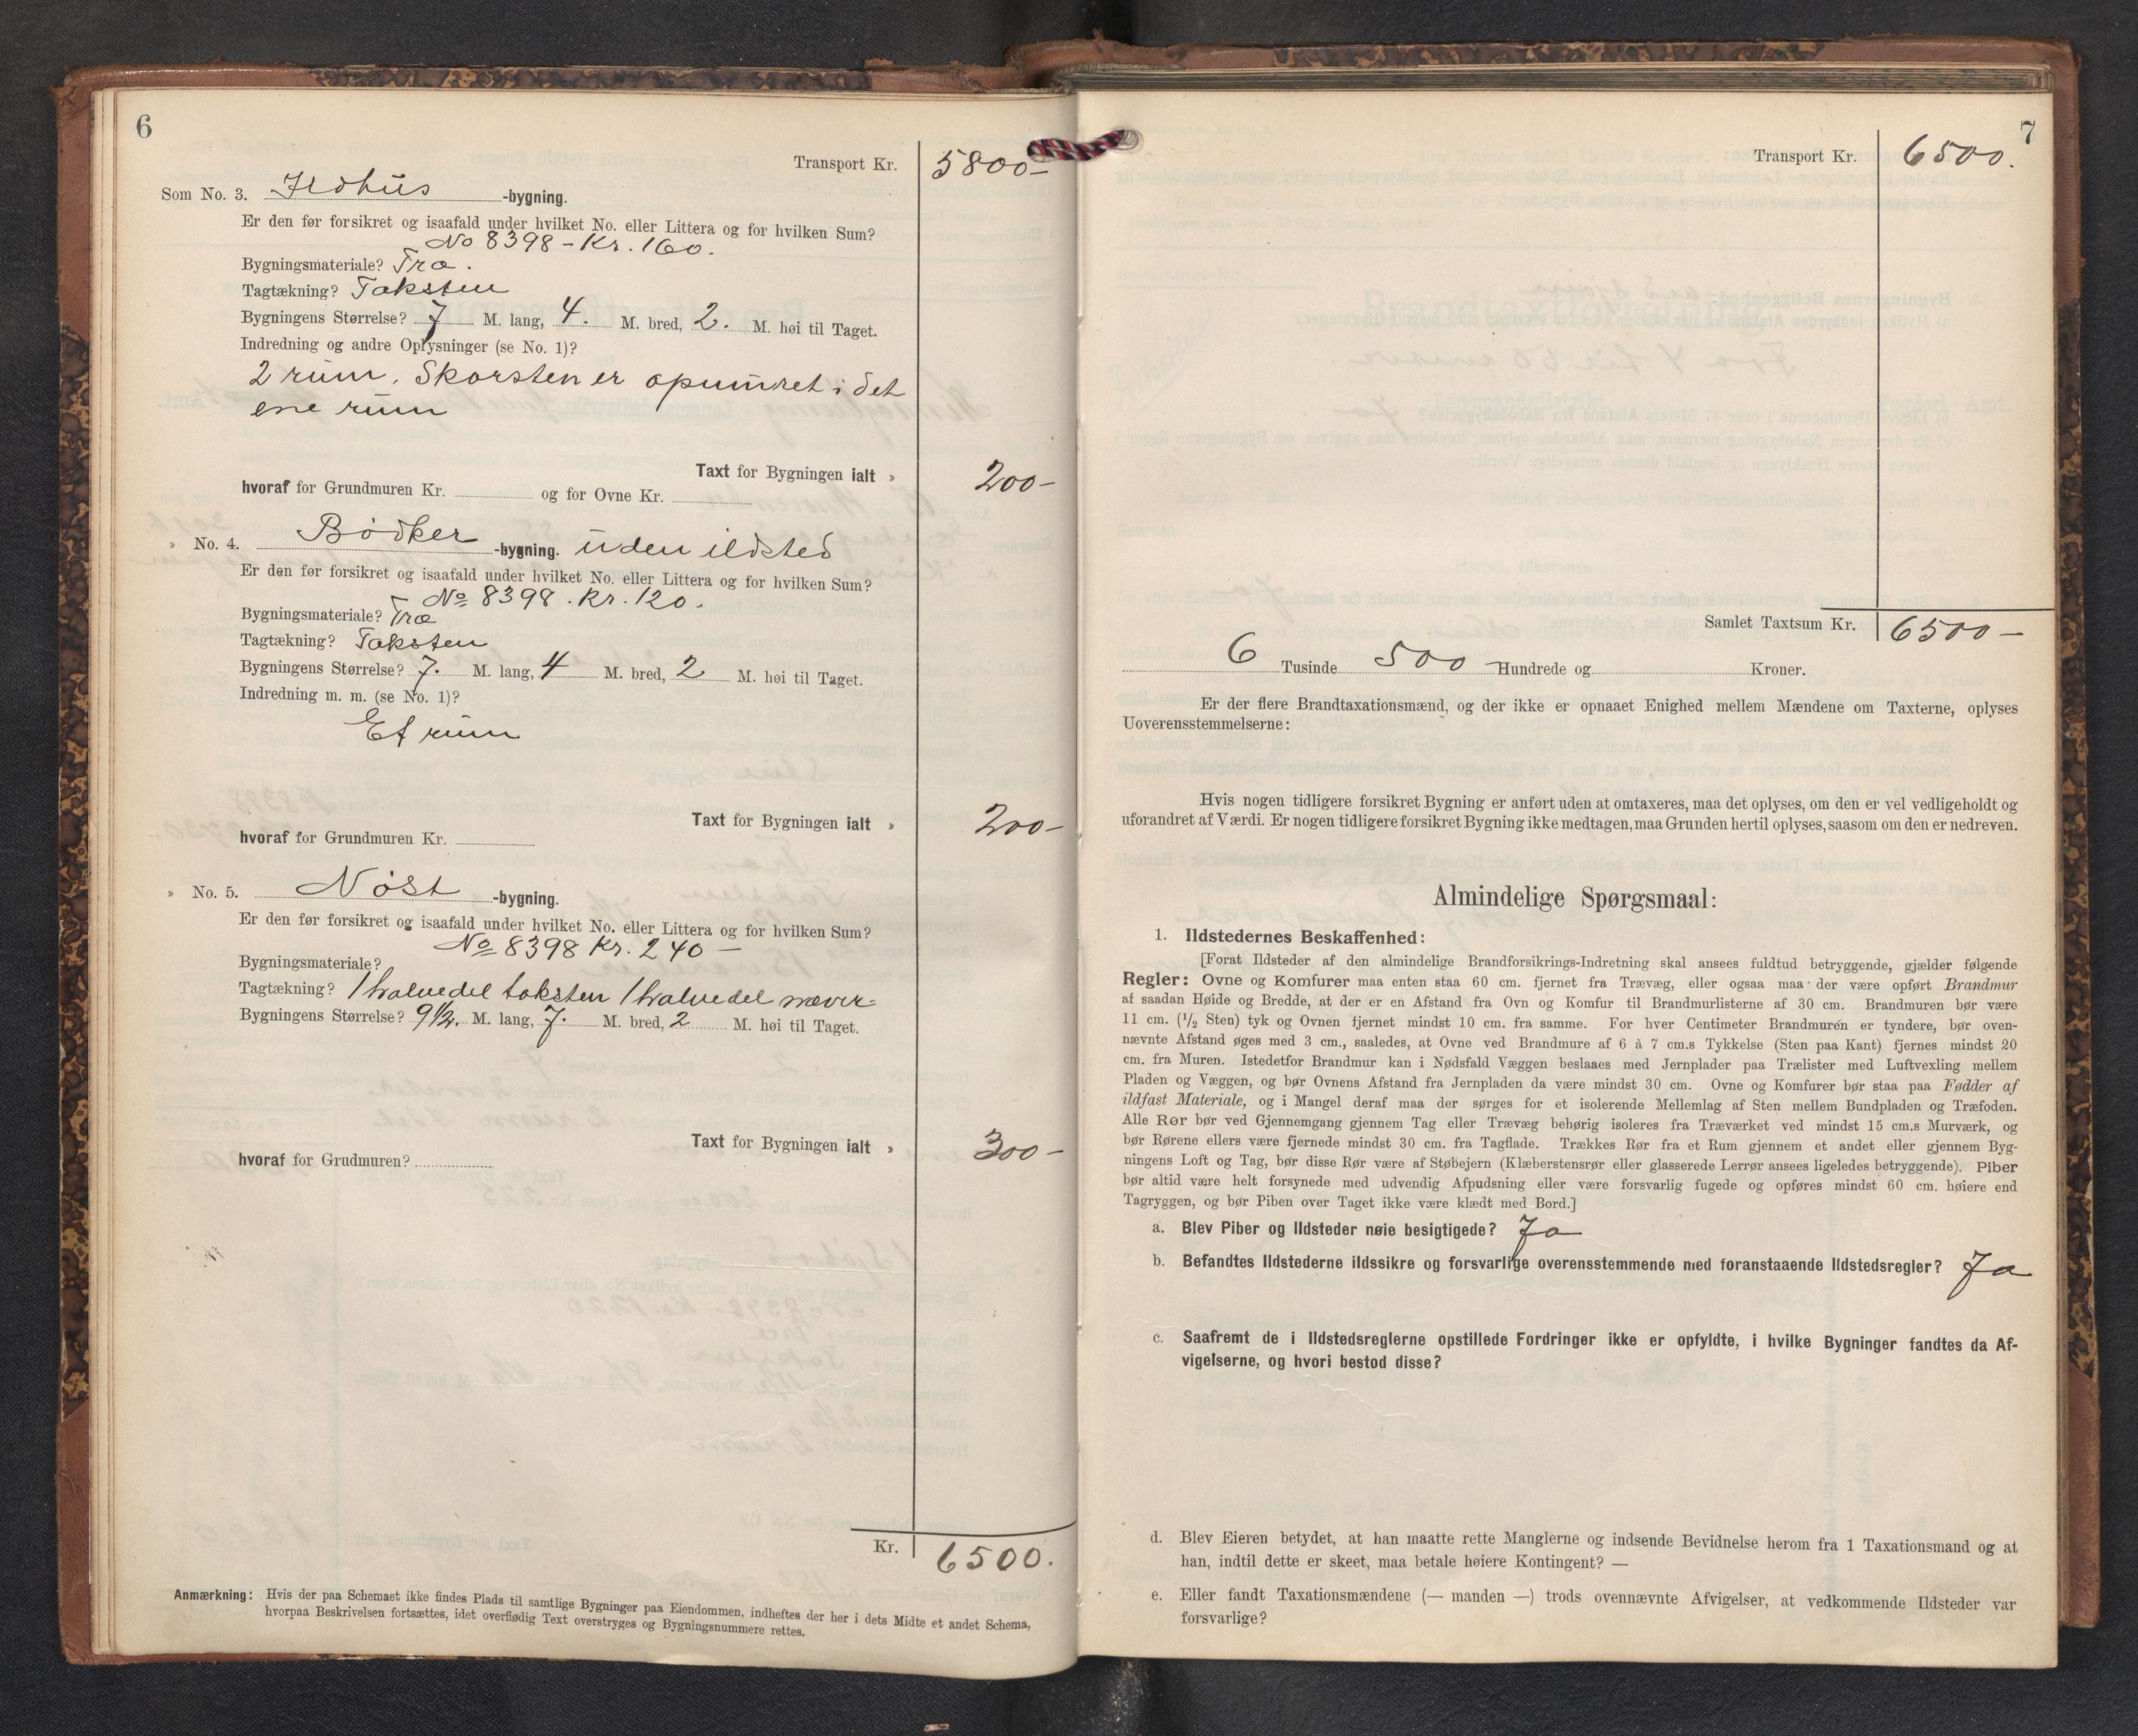 6
Transport Kr. 5800 –
Som No. 3. Ildhus -bygning.
Er den før forsikret og isaafald under hvilket No. eller Littera og for hvilken Sum?
No 8398 – Kr. 160.
Bygningsmateriale? Træ.
Tagtækning? Taksten
Bygningens Størrelse? 7 M. lang, 4. M. bred, 2. M. høi til Taget.
Indredning og andre Oplysninger (se No. 1)?
2 rum. Skorsten er opmuret i det
ene rum
Taxt for Bygningen ialt » 200 –
hvoraf for Grundmuren Kr. og for Ovne Kr.
» No. 4. Bødker -bygning. uden ildsted
Er den før forsikret og isaafald under hvilket No. eller Littera og for hvilken Sum?
No 8398. Kr. 120.
Bygningsmateriale? Træ
Tagtækning? Taksten
Bygningens Størrelse? 7. M. lang, 4 M. bred, 2 M. høi til Taget.
Indredning m. m. (se No. 1)?
Et rum
Taxt for Bygningen ialt » 200 –
hvoraf for Grundmuren Kr.
» No. 5. Nøst -bygning.
Er den før forsikret og isaafald under hvilket No. eller Littera og for hvilken Sum?
No 8398 Kr. 240 –
Bygningsmateriale?
Tagtækning? 1 halvedel taksten 1 halvedel næver
Bygningens Størrelse? 9 1/2. M. lang, 7. M. bred, 2 M. høi til Taget.
Taxt for Bygningen ialt » 300 –
hvoraf for Grudmuren?
Kr. 6500.
Anmærkning: Hvis der paa Schemaet ikke findes Plads til samtlige Bygninger paa Eiendommen, indheftes der her i dets Midte et andet Schema,
hvorpaa Beskrivelsen fortsættes, idet overflødig Text overstryges og Bygningsnummere rettes.
7
Transport Kr. 6500.
Samlet Taxtsum Kr. 6500 –
6 Tusinde 500 Hundrede og Kroner.
Er der flere Brandtaxationsmænd, og der ikke er opnaaet Enighed mellem Mændene om Taxterne, oplyses
Uoverensstemmelserne:
Hvis nogen tidligere forsikret Bygning er anført uden at omtaxeres, maa det oplyses, om den er vel vedligeholdt og
uforandret af Værdi. Er nogen tidligere forsikret Bygning ikke medtagen, maa Grunden hertil oplyses, saasom om den er nedreven.
Almindelige Spørgsmaal:
1. Ildstedernes Beskaffenhed:
[Forat Ildsteder af den almindelige Brandforsikrings-Indretning skal ansees fuldtud betryggende, gjælder følgende
Regler: Ovne og Komfurer maa enten staa 60 cm. fjernet fra Trævæg, eller ogsaa maa der være opført Brandmur
af saadan Høide og Bredde, at der er en Afstand fra Ovn og Komfur til Brandmurlisterne af 30 cm. Brandmuren bør være
11 cm. (1/2 Sten) tyk og Ovnen fjernet mindst 10 cm. fra samme. For hver Centimeter Brandmuren er tyndere, bør oven-
nævnte Afstand øges med 3 cm., saaledes, at Ovne ved Brandmure af 6 à 7 cm.s Tykkelse (Sten paa Kant) fjernes mindst 20
cm. fra Muren. Istedetfor Brandmur kan i Nødsfald Væggen beslaaes med Jernplader paa Trælister med Luftvexling mellem
Pladen og Væggen, og bør Ovnens Afstand fra Jernpladen da være mindst 30 cm. Ovne og Komfurer bør staa paa Fødder af
ildfast Materiale, og i Mangel deraf maa der sørges for et isolerende Mellemlag af Sten mellem Bundpladen og Træfoden.
Alle Rør bør ved Gjennemgang gjennem Tag eller Trævæg behørig isoleres fra Træværket ved mindst 15 cm.s Murværk, og
bør Rørene ellers være fjernede mindst 30 cm. fra Tagflade. Trækkes Rør fra et Rum gjennem et andet eller gjennem Byg-
ningens Loft og Tag, bør disse Rør være af Støbejern (Klæberstensrør eller glasserede Lerrør ansees ligeledes betryggende). Piber
bør altid være helt forsynede med udvendig Afpudsning eller være forsvarlig fugede og opføres mindst 60 cm. høiere end
Tagryggen, og bør Piben over Taget ikke være klædt med Bord.]
a. Blev Piber og Ildsteder nøie besigtigede? Ja
b. Befandtes Ildstederne ildssikre og forsvarlige overensstemmende med foranstaaende Ildstedsregler? Ja
c. Saafremt de i Ildstedsreglerne opstillede Fordringer ikke er opfyldte, i hvilke Bygninger fandtes da Af-
vigelserne, og hvori bestod disse?
d. Blev Eieren betydet, at han maatte rette Manglerne og indsende Bevidnelse herom fra 1 Taxationsmand og at
han, indtil dette er skeet, maa betale høiere Kontingent? —
e. Eller fandt Taxationsmændene (— manden —) trods ovennævnte Afvigelser, at vedkommende Ildsteder var
forsvarlige?